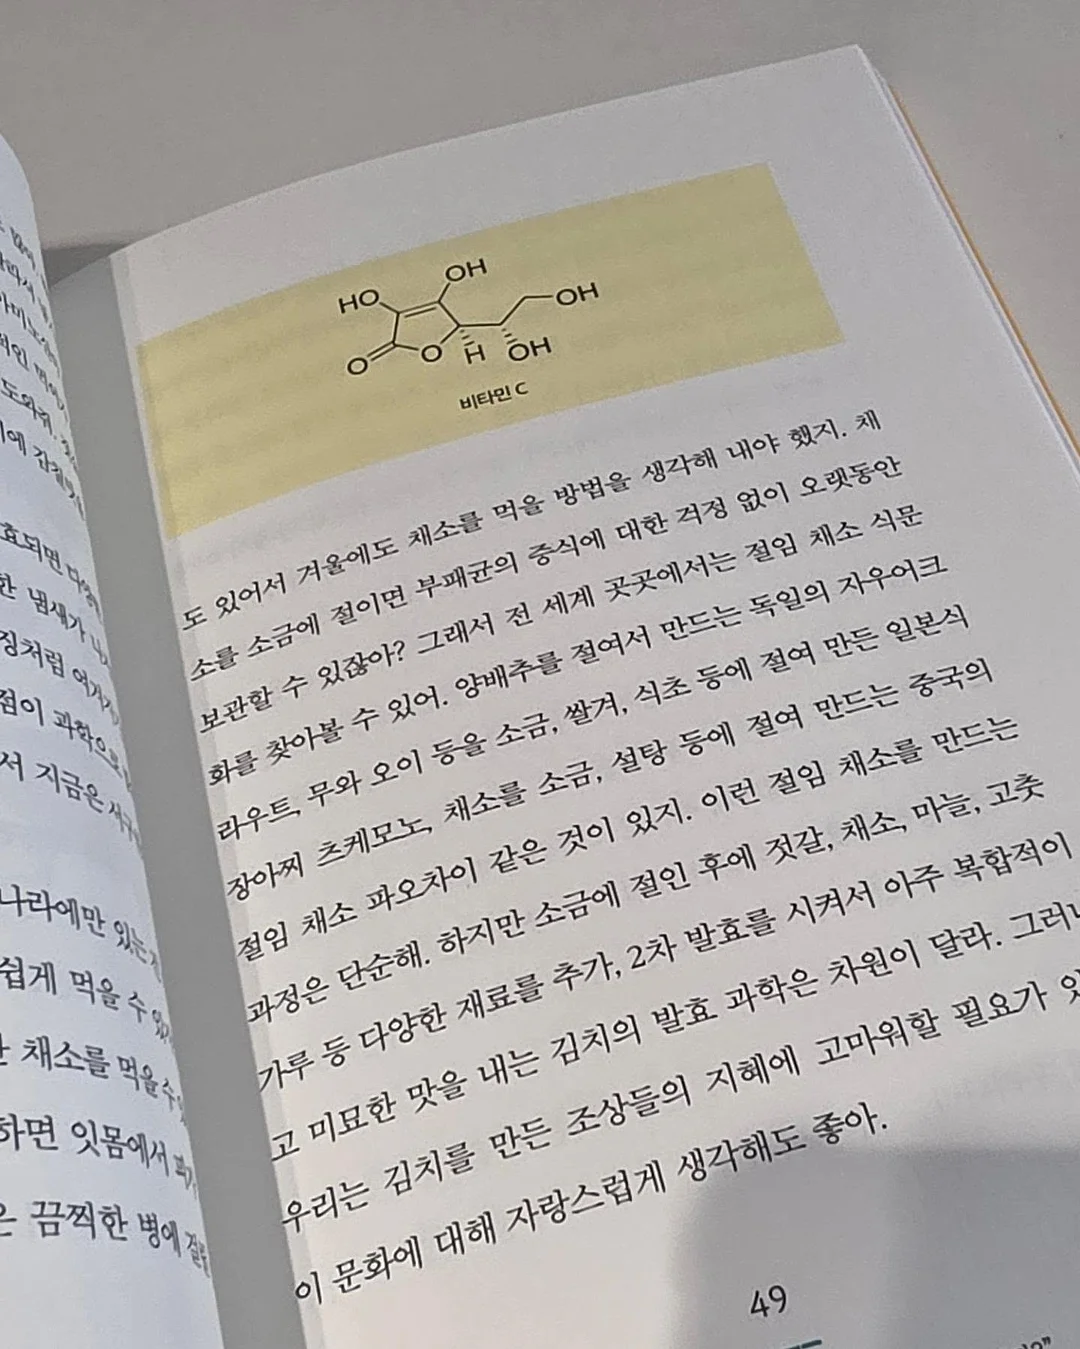 많이
따라서
아미노산
적인
도와줘.
에 간질
효되면 다양한
한 냄새가 나
징처럼 여겨
점이 과학으로
서 지금은 서구
나라에만 있는
쉽게 먹을 수 있
채소를 먹을 수
하면 잇몸에서 피가
은 끔찍한 병에 걸
HO
OH
OH
O
O
H
OH
비타민 C
도 있어서 겨울에도 채소를 먹을 방법을 생각해 내야 했지. 채
소를 소금에 절이면 부패균의 증식에 대한 걱정 없이 오랫동안
보관할 수 있잖아? 그래서 전 세계 곳곳에서는 절임 채소 식문
화를 찾아볼 수 있어. 양배추를 절여서 만드는 독일의 자우어크
라우트, 무와 오이 등을 소금, 쌀겨, 식초 등에 절여 만든 일본식
장아찌 츠케모노, 채소를 소금, 설탕 등에 절여 만드는 중국의
절임 채소 파오차이 같은 것이 있지. 이런 절임 채소를 만드는
과정은 단순해. 하지만 소금에 절인 후에 젓갈, 채소, 마늘, 고춧
가루 등 다양한 재료를 추가, 2차 발효를 시켜서 아주 복합적이
고 미묘한 맛을 내는 김치의 발효 과학은 차원이 달라. 그러니
우리는 김치를 만든 조상들의 지혜에 고마워할 필요가 있
이 문화에 대해 자랑스럽게 생각해도 좋아.
49